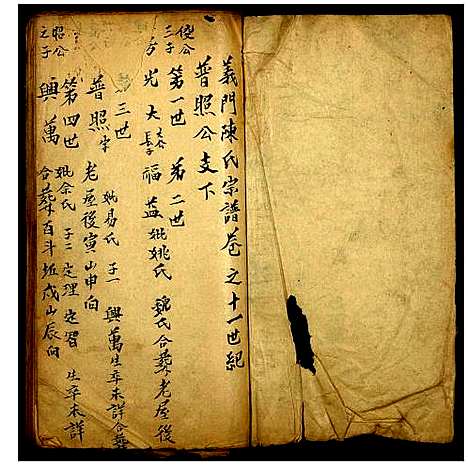 義門陳氏宗譜卷之十一世紀
普照公支下
第一世 第二世
光大 長子 福益 妣姚氏 魏氏合葬老屋後
三世
普照 字 妣易氏 子一 興萬 生卒未詳合葬
老屋後寅山申向
第四世 妣余氏 子二 定理 定習 生卒未詳
興萬 合葬百斗坵戍山辰向
俊公
三子
昭公
之子